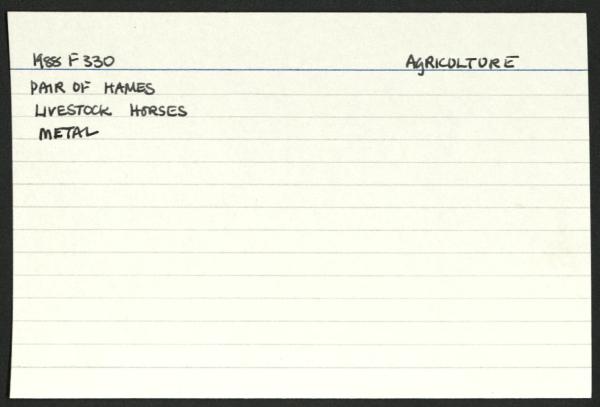 K88 F 330 AGRICULTURE
PAIR OF HAMES
LIVESTOCK HORSES
METAL